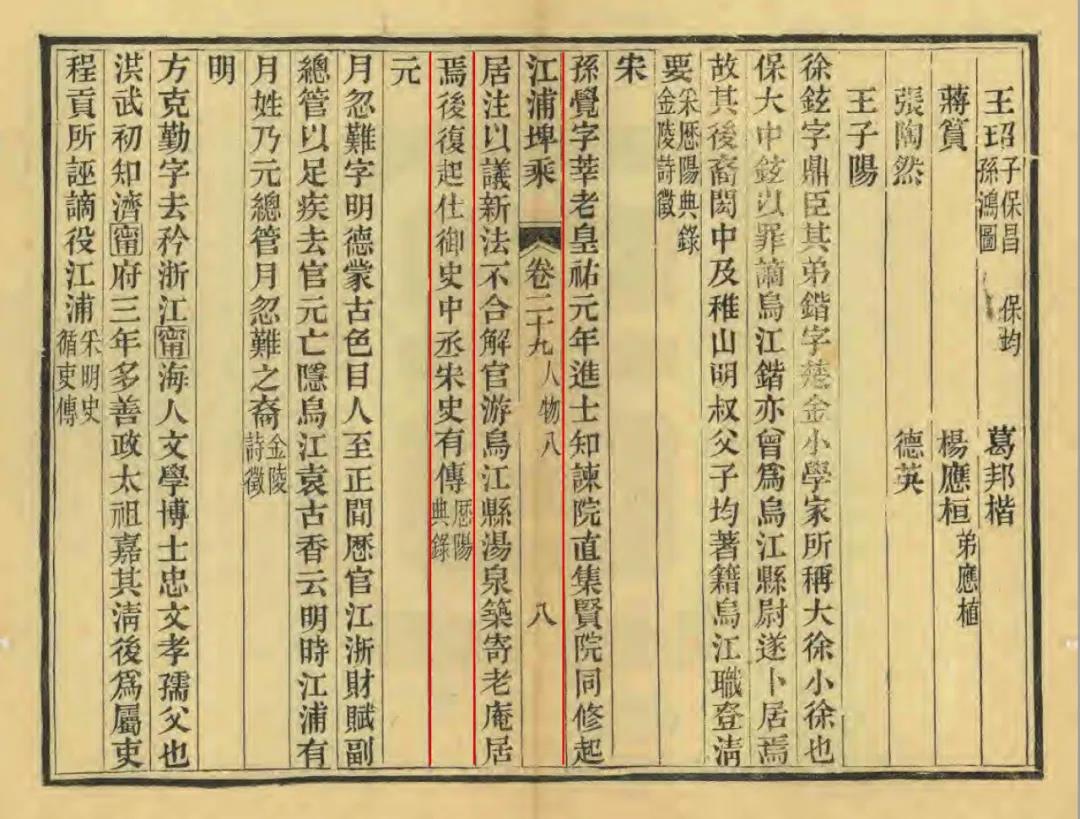 王玿子保昌孫鴻圖 保均 葛邦楷
蔣篔 楊應桓弟應植
張陶然 德英
王子陽
徐鉉字鼎臣其弟鍇字楚金小學家所稱大徐小徐也
保大中鉉以罪謫烏江鍇亦曾爲烏江縣尉遂卜居焉
故其後裔閎中及稚山明叔父子均著籍烏江職登淸
要采歷陽典錄金陵詩徵
宋
孫覺字莘老皇祐元年進士知諫院直集賢院同修起
江浦埤乘 卷二十九人物八 八
居注以議新法不合解官游烏江縣湯泉築寄老庵居
焉後復起仕御史中丞宋史有傳歷陽典錄
元
月忽難字明德蒙古色目人至正間歷官江浙財賦副
總管以足疾去官元亡隱烏江袁古香云明時江浦有
月姓乃元總管月忽難之裔金陵詩徵
明
方克勤字去矜浙江甯海人文學博士忠文孝孺父也
洪武初知濟甯府三年多善政太祖嘉其淸後爲屬吏
程貢所誣謫役江浦采明史循吏傳